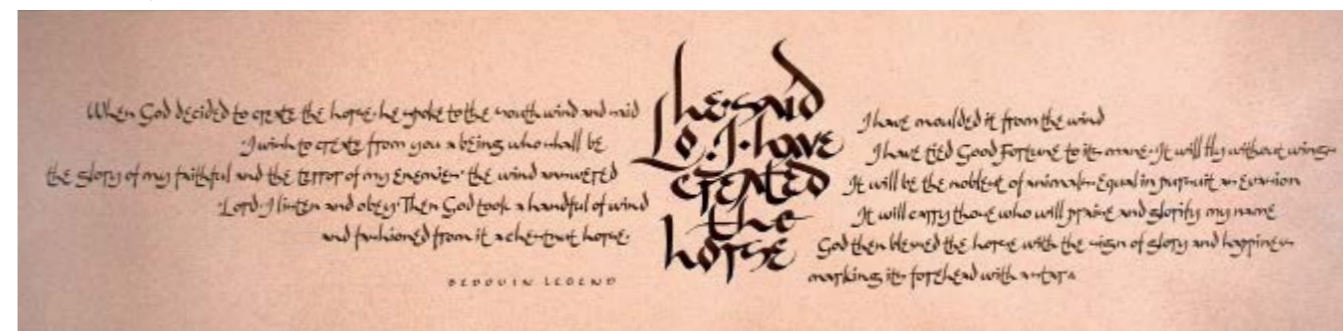 When God decided to create the horse he spoke to the south wind and said
I wish to create from you a being who shall be
the glory of my faithful and the terror of my enemies the wind answered
Lord I listen and obey Then God took a handful of wind
and fashioned from it a chestnut horse
BEDOUIN LEGEND
he said
Lo I have
created
the
horse
I have moulded it from the wind
I have tied Good Fortune to its mane It will fly without wings
It will be the noblest of animals Equal in pursuit as Evasion
It will carry those who will praise and glorify my name
God then blessed the horse with the sign of glory and happiness
marking its forehead with a star